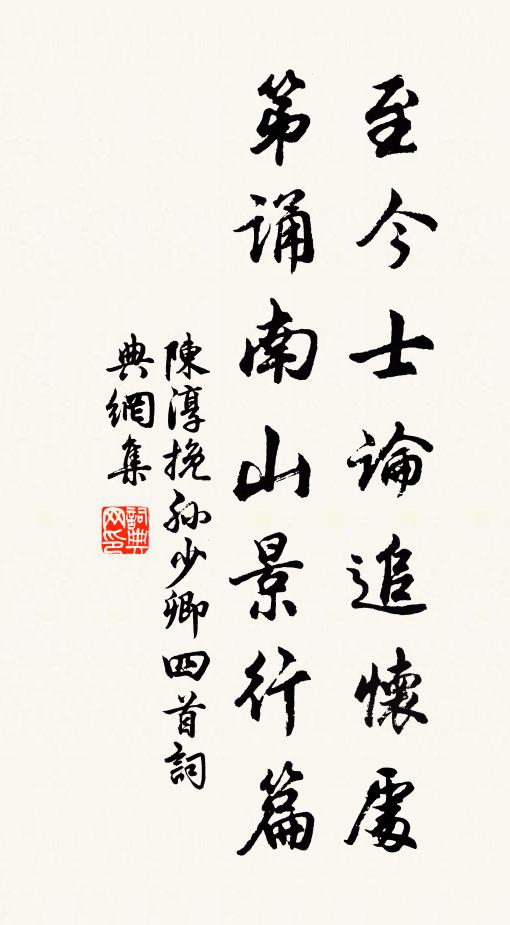 至今士論追懷處
第誦南山景行篇
陳淳挽孫少卿四首詞
典網集
詞典网印